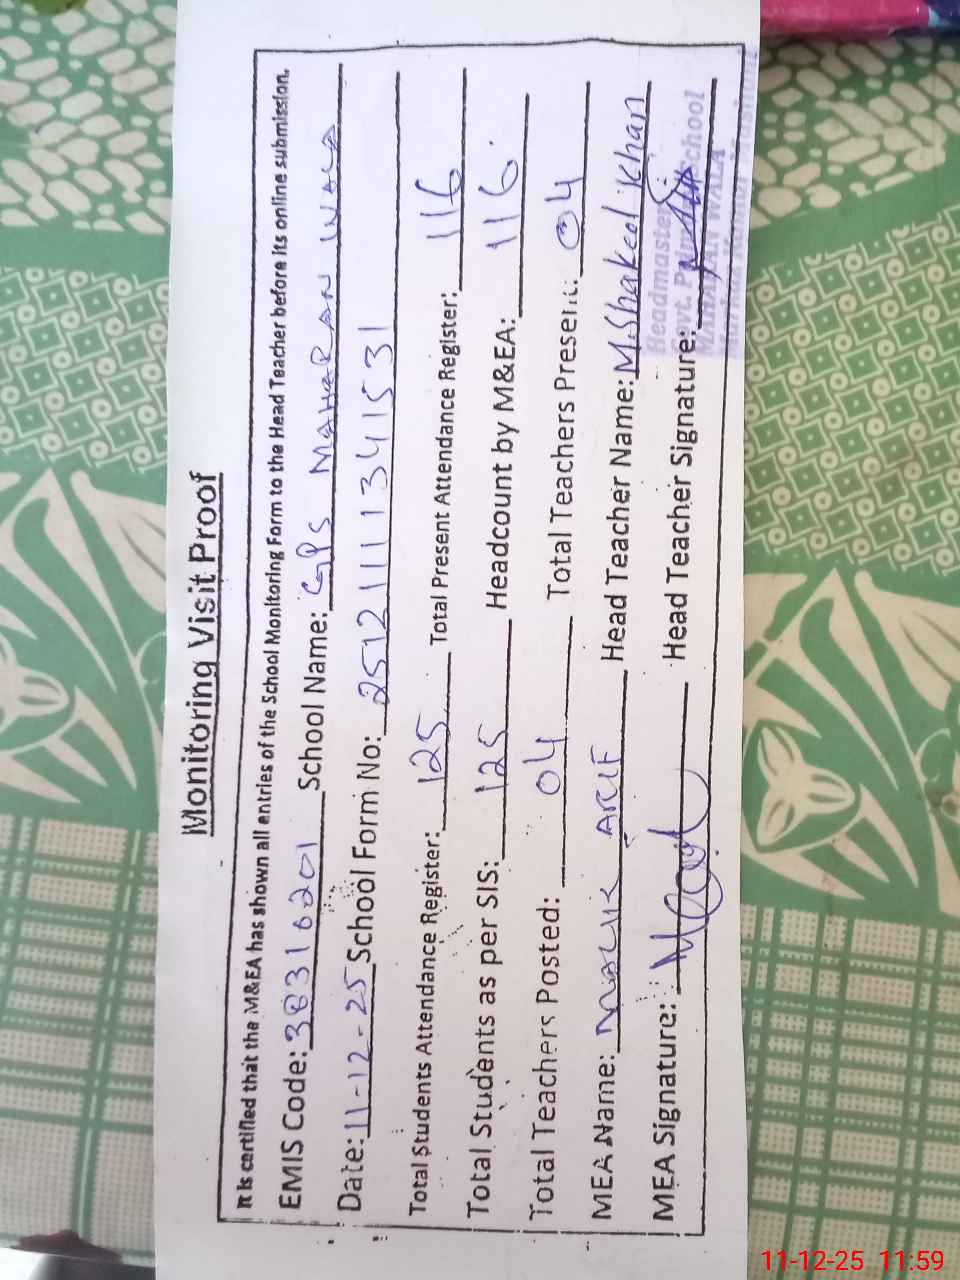 Monitoring Visit Proof
It is certified that the M&EA has shown all entries of the School Monitoring Form to the Head Teacher before its online submission.
EMIS Code: 38310201 School Name: GPS MAHARAN WALA
Date: 11-12-25 School Form No: 2512111134153 1
Total Students Attendance Register: 125 Total Present Attendance Register: 116
Total Students as per SIS: 125 Headcount by M&EA: 116.
Total Teachers Posted: 04 Total Teachers Present: 04
MEA Name: MALIK ARIF Head Teacher Name: M.Shakeel Khan
MEA Signature: Head Teacher Signature:
Headmaster
Govt. Primary School
MAHARAN WALA
11-12-25 11:59